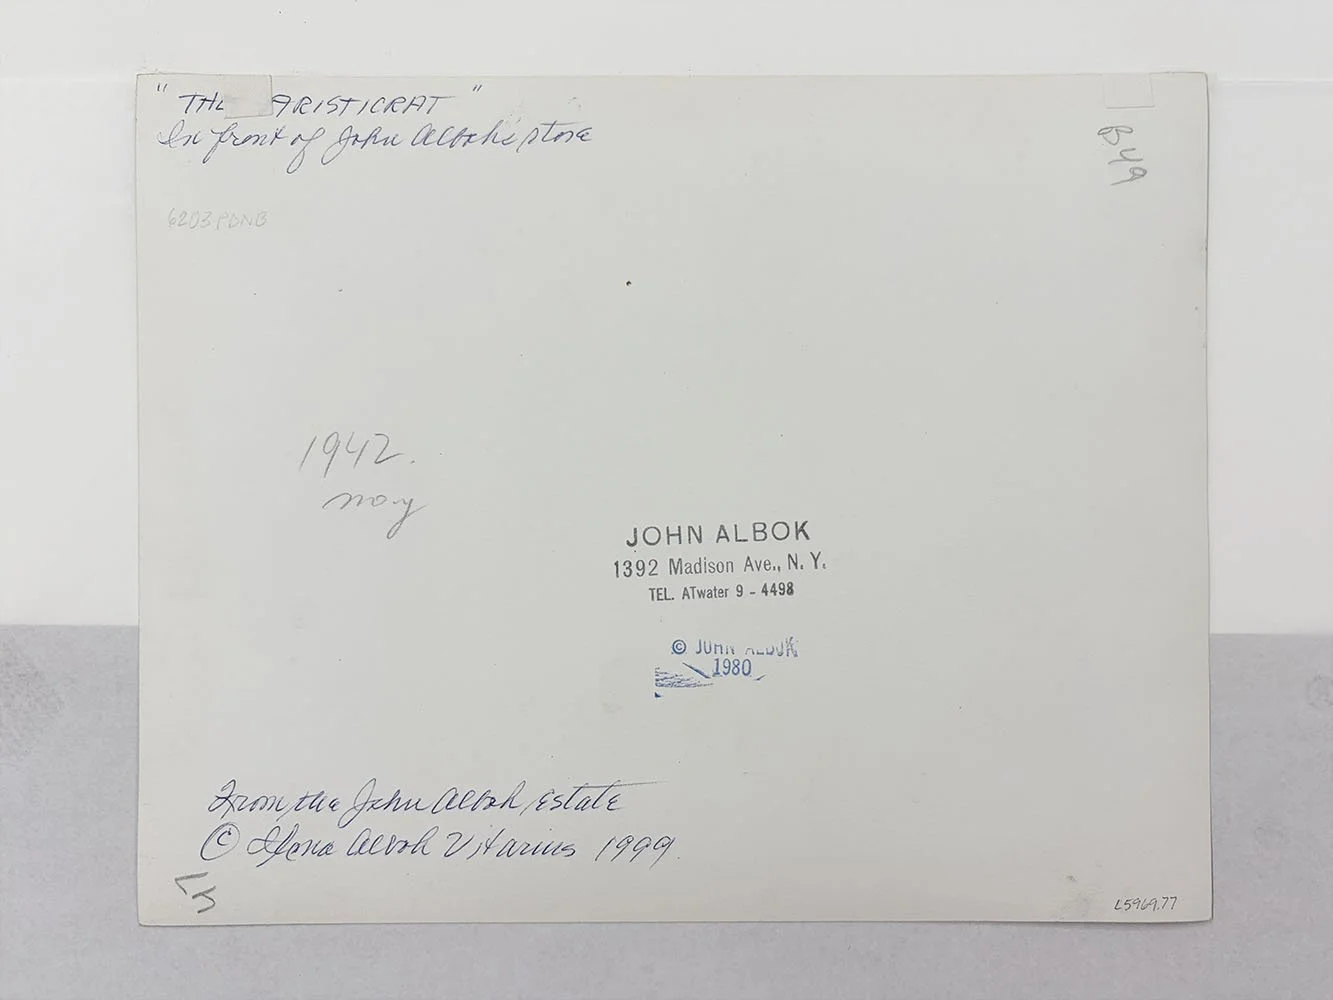 "THE ARISTICRAT"
In front of John Albok's store
B49
6203 PDNB
1942.
may
JOHN ALBOK
1392 Madison Ave., N. Y.
TEL. ATwater 9 - 4498
© JOHN ALBOK
1980
From the John Albok Estate
© Ilona Albok Vitarius 1999
L5969.77